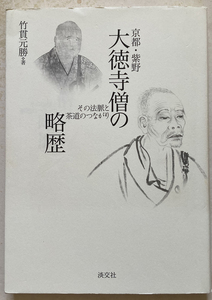 京都・紫野
大徳寺僧の
略歴
その法脈と
茶道のつながり
竹貫元勝 著
淡交社